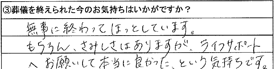 ③葬儀を終えられた今のお気持ちはいかがですか?
無事に終わってほっとしています。
もちろん、さみしさはありますが、ライフサポート
へお願いして本当に良かった、という気持ちです。